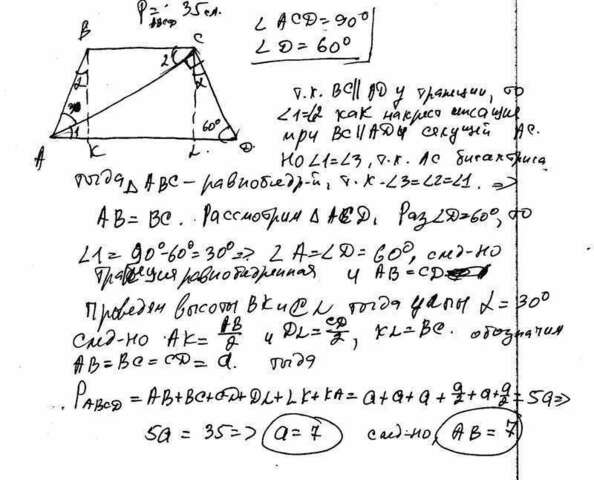 P = 35 см.
ABCD
∠ACD = 90°
∠D = 60°
B C
2
α α
3 1 60°
A K L D
т.к. BC∥AD у трапеции, то
∠1=∠2 как накрест лежащие
при BC∥AD и секущей AC.
Но ∠1=∠3, т.к. AC биссектриса
тогда △ABC – равнобедр-й, т.к. ∠3=∠2=∠1. =>
AB = BC. Рассмотрим △ACD. Раз ∠D=60°, то
∠1 = 90°-60°=30° => ∠A=∠D=60°, след-но
трапеция равнобедренная и AB=CD
Проведем высоты BK и CL тогда углы α = 30°
след-но AK = AB/2 и DL = CD/2, KL = BC. обозначим
AB = BC = CD = a. тогда
P ABCD = AB+BC+CD+DL+LK+KA = a+a+a+a/2+a+a/2 = 5a =>
5a = 35 => a = 7 след-но, AB = 7